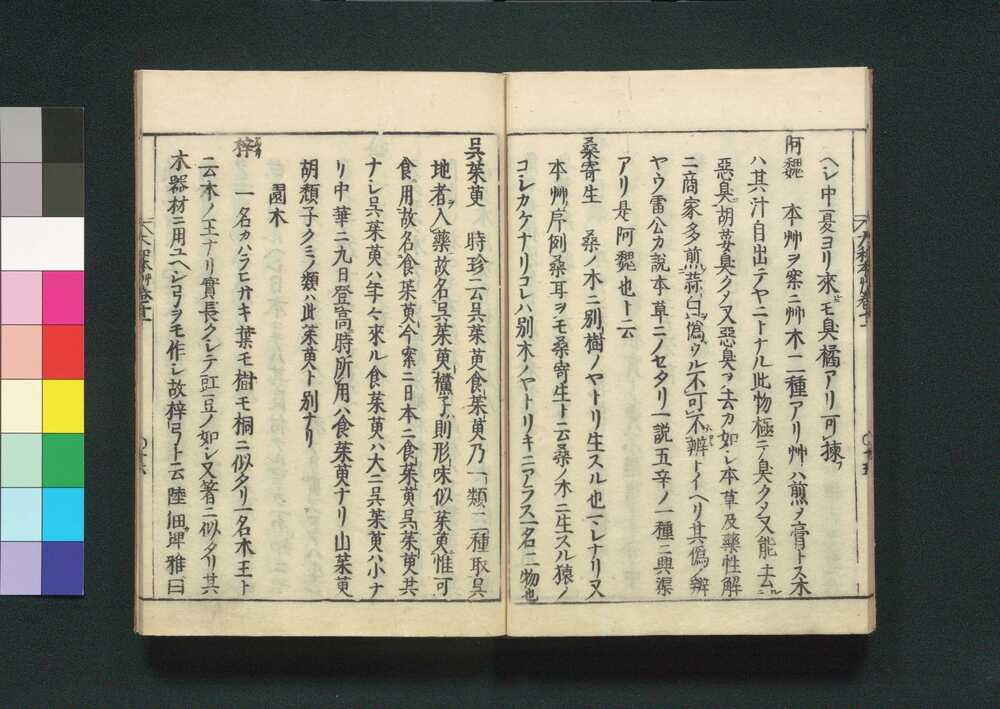 ヘシ中夏ヨリ來モ臭橘アリ可揀フ
阿魏 本艸ヲ案ニ艸木二種アリ艸ハ煎ノ膏トス木
ハ其汁自出テヤニトナル此物極テ臭クメ又能去ル
惡臭胡荽臭クメ又惡臭ヲ去カ如シ本草及藥性解
ニ商家多煎蒜白ヲ偽ウル不可不辨トイヘリ其偽ノ辨
ヤウ雷公カ說本草ニノセタリ一說五辛ノ一種ニ興渠
アリ是阿魏也ト云
桑寄生 桑ノ木ニ別樹ノヤトリ生スル也マレナリ又
本艸序例桑耳ヲモ桑寄生ト云桑ノ木ニ生スル猿ノ
コシカケナリコレハ別木ノヤトリキニアラス一名二物也
吳茱萸 時珍云吳茱萸食茱萸乃一類二種取吳
地者入藥故名吳茱萸欓子則形味似茱萸惟可
食用故名食茱萸今案ニ日本ニ食茱萸吳茱萸共
ナシ吳茱萸ハ年々來ル食茱萸ハ大ニ吳茱萸ハ小ナ
リ中華ニ九日登高時所用ハ食茱萸ナリ山茱萸
胡頽子クミノ類ハ此茱萸ト別ナリ
園木
梓 一名カハラヒサキ葉モ樹モ桐ニ似タリ一名木王ト
云木ノ王ナリ實長クシテ豇豆ノ如シ又箸ニ似タリ其
木器材ニ用ユヘシ弓ヲモ作レシ故梓弓ト云陸佃埤雅曰